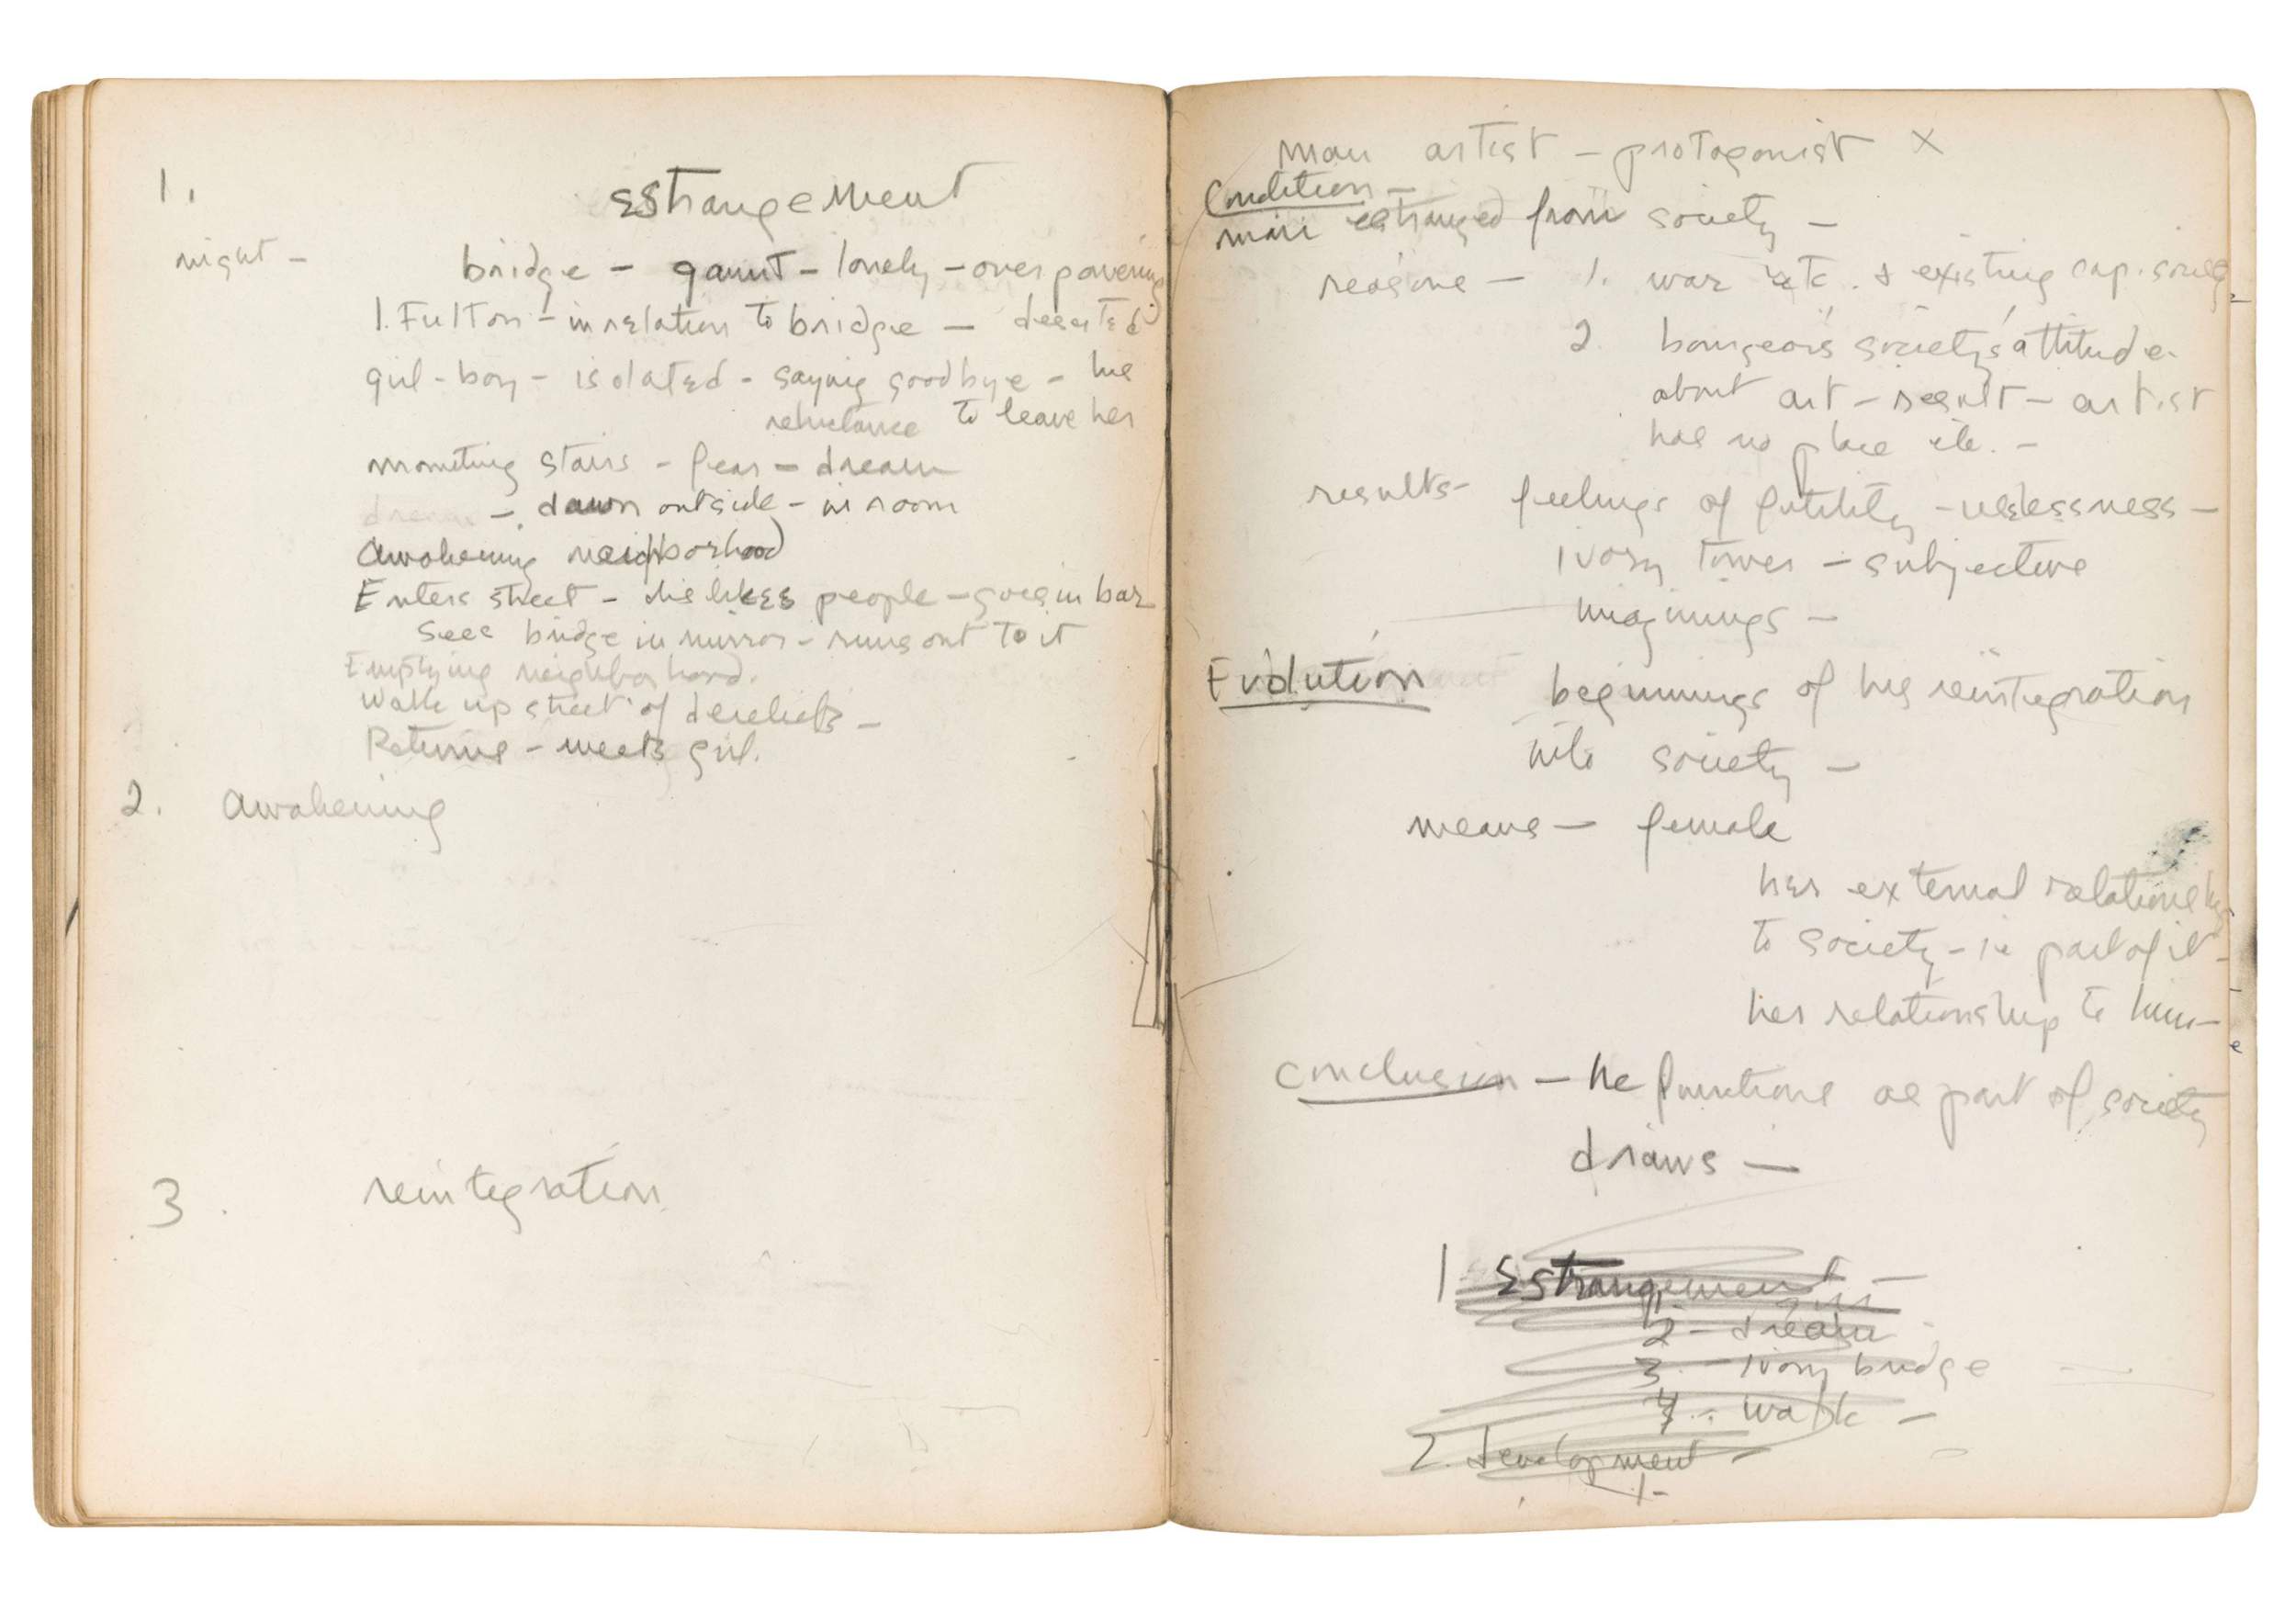 1.
Estrangement
night –
bridge – gaunt – lonely – overpowering
1. Fulton – in relation to bridge – deserted
girl - boy – isolated - saying goodbye – his
reluctance to leave her
mounting stairs – fear – dream
dream – dawn outside – in room
Awakening neighborhood
Enters street – dislikes people – goes in bar
sees bridge in mirror – runs out to it
Emptying neighborhood.
Walk up street of derelicts –
Returns – meets girl.
2. Awakening
3. reintegration
man artist – protagonist X
Condition –
man estranged from society –
reasons – 1. war etc. & existing cap. society
2. bourgeois society's attitude
about art – result – artist
has no place etc. –
results - feelings of futility – uselessness –
ivory tower – subjective
imaginings –
Evolution beginnings of his reintegration
into society –
means – female
her external relationship
to society – is part of it –
her relationship to him –
Conclusion – he functions as part of society
draws –
1 Estrangement –
2 – dream
3. – ivory bridge
4 – walk –
2. development –
1 -